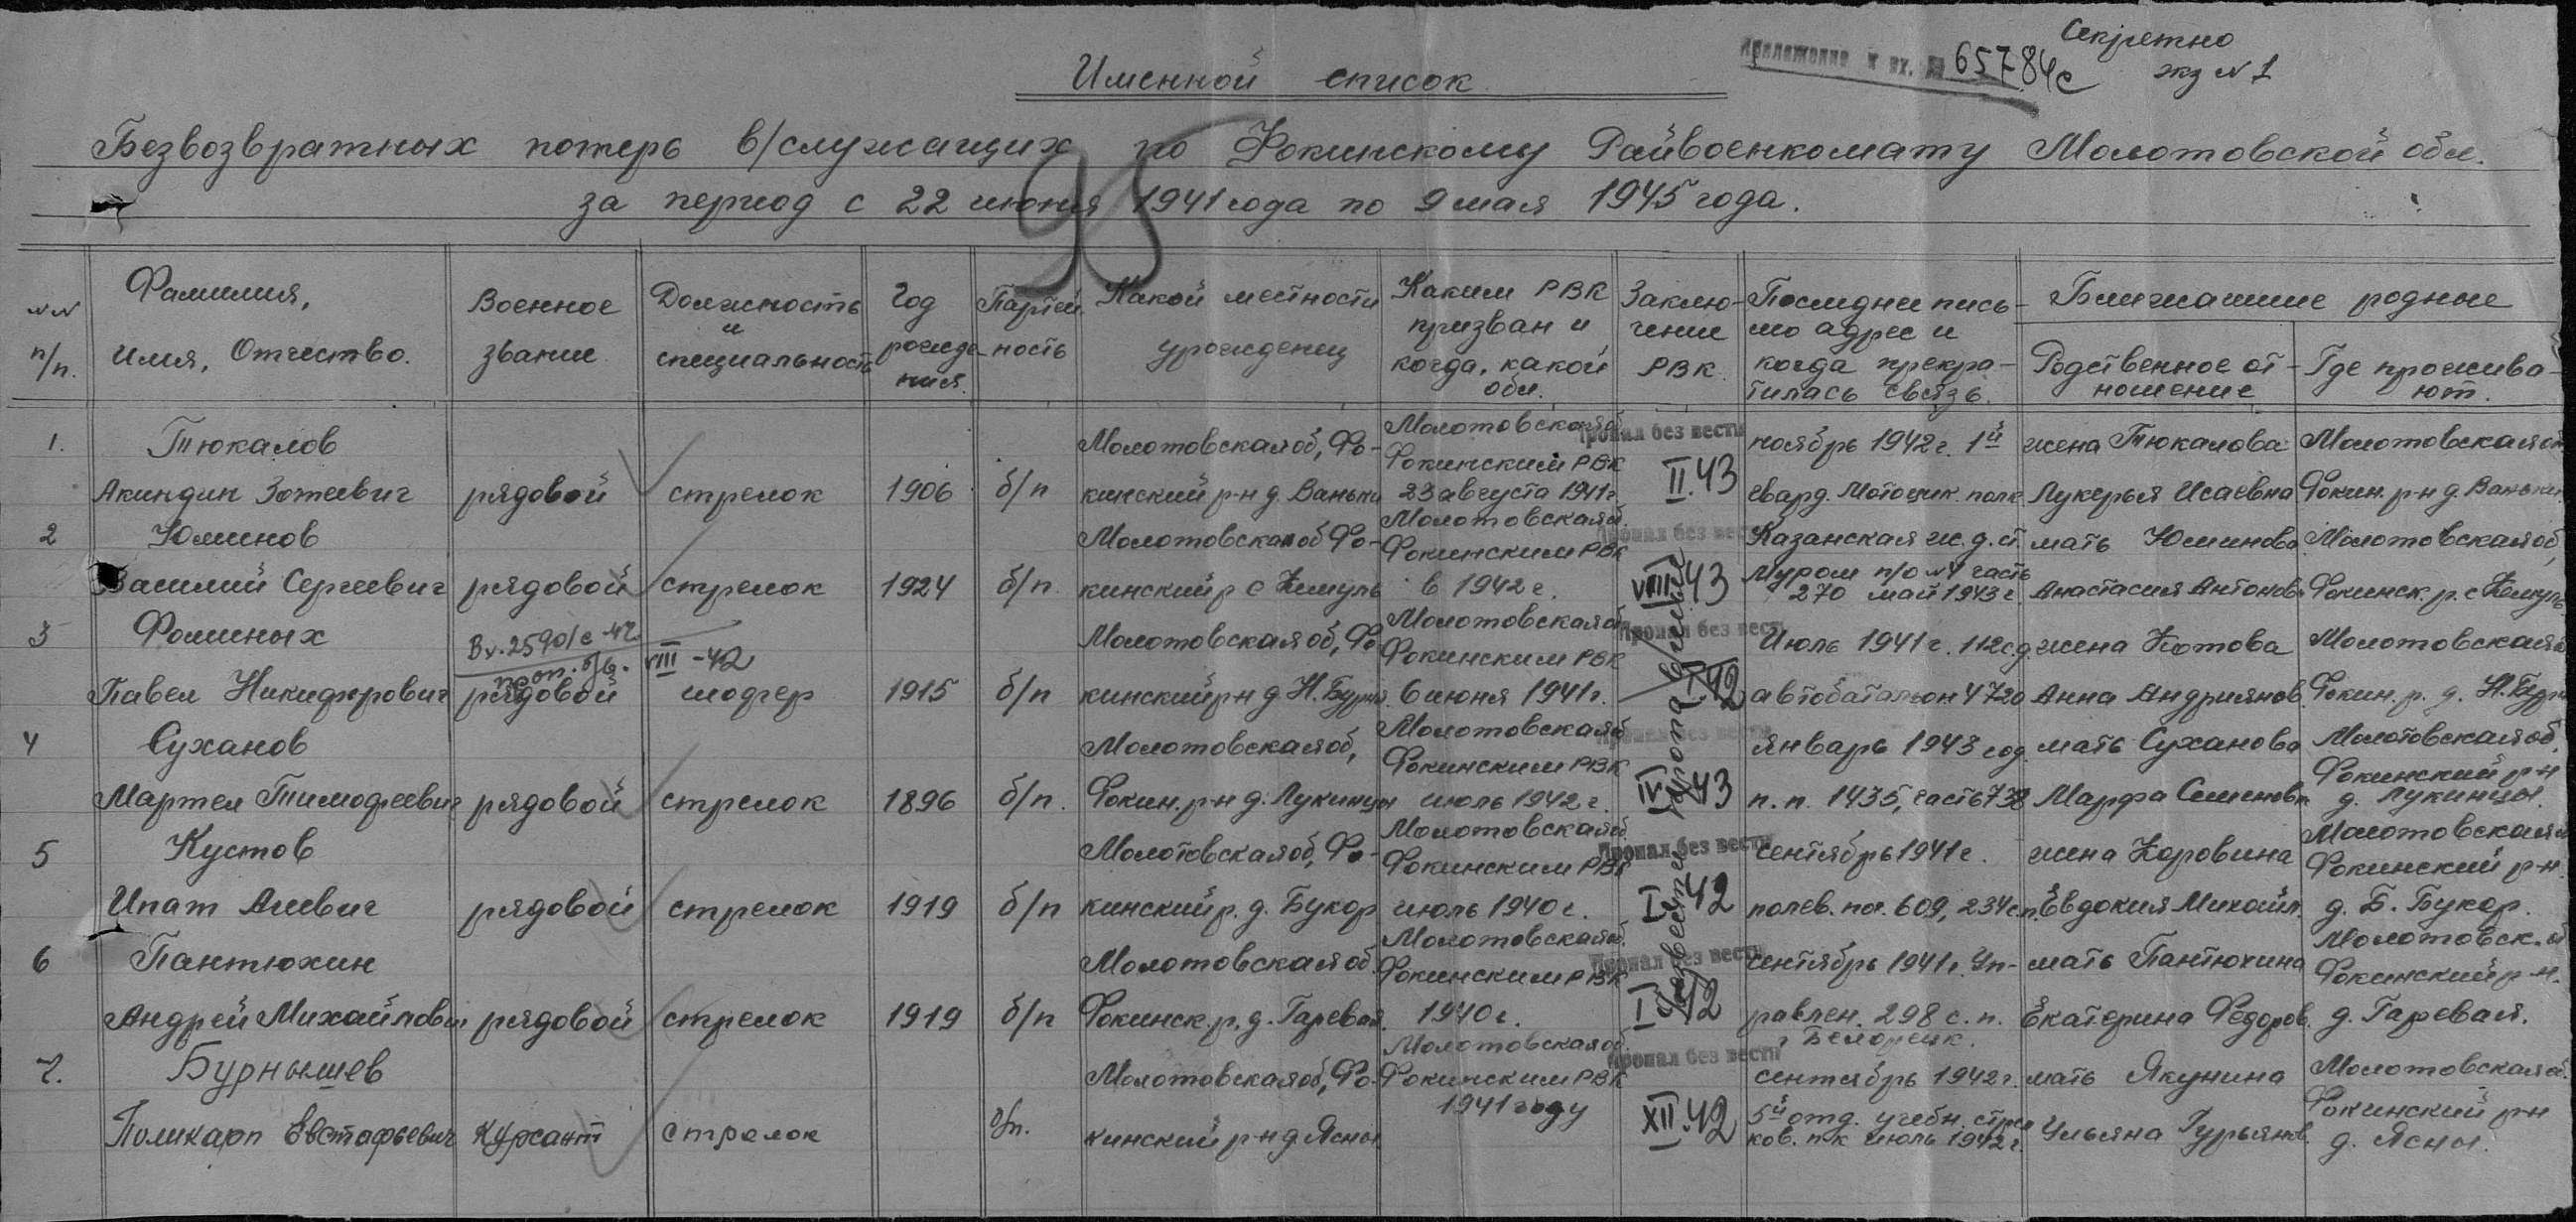 Секретно
экз №1
Приложение к вх. № 65784с
Именной список
Безвозвратных потерь в/служащих по Фокинскому Райвоенкомату Молотовской обл.
за период с 22 июня 1941 года по 9 мая 1945 года.
98
№№ п/п.
Фамилия, Имя, Отчество.
Военное звание
Должность и специальность
Год рождения
Партийность
Какой местности урожденец
Каким РВК призван и когда, какой обл.
Заключение РВК
Последнее письмо адрес и когда прекратилась связь.
Ближайшие родные
Родственное отношение
Где проживают.
1. Тюкалов Молотовская об, Фо- Молотовская об Пропал без вести ноябрь 1942 г. 1й жена Тюкалова Молотовская об
Акиндин Зотеевич рядовой стрелок 1906 б/п кинский р-н д. Ваньки Фокинским РВК 23 августа 1941 г. II.43 гвард. мотоцик. полк Лукерья Исаевна Фокин. р-н д. Ваньки
2 Юминов Молотовская об Фо- Молотовская об. Пропал без вести Казанская ж.д. ст. мать Юминова Молотовская об,
Василий Сергеевич рядовой стрелок 1924 б/п. кинский р с Кемуль Фокинским РВК в 1942 г. VIII.43 Муром п/о №4 часть 270 май 1943 г. Анастасия Антонов. Фокинск. р. с Кемуль
3 Фоминых Вх. 2590/с-42 VIII-42 Молотовская об, Фо Молотовская об Пропал без вести Июль 1941 г. 112 с.д. жена Котова Молотовская
Павел Никифорович рядовой шофер 1915 б/п кинский р-н д Н. Бурня. Фокинским РВК 6 июня 1941 г. автобатальон 4720 Анна Андриянов. Фокин. р. д. Н. Бурн
4 Суханов Молотовская об, Молотовская об Пропал без вести январь 1943 год. мать Суханова Молотовская об,
Мартел Тимофеевич рядовой стрелок 1896 б/п. Фокин. р-н д. Лукинцы Фокинским РВК июль 1942 г. IV 43 п.п. 1435, часть 738 Марфа Семеновн Фокинский р-н д. Лукинцы.
5 Кустов Молотовская об, Фо- Молотовская об. Пропал без вести сентябрь 1941 г. жена Коровина Молотовская
Ипат Агеевич рядовой стрелок 1919 б/п кинский р. д. Букор Фокинским РВК июль 1940 г. I 42 полев. поч. 609, 234 с.п. Евдокия Михайл. Фокинский р-н. д. Б. Букор.
6 Пантюхин Молотовская об. Молотовская об. Пропал без вести сентябрь 1941 г. Уп- мать Пантюхина Молотовск.
Андрей Михайлович рядовой стрелок 1919 б/п Фокинск. р. д. Гаревая. Фокинским РВК 1940 г. I 42 равлен. 298 с.п. Екатерина Федоров. Фокинский р-н. д. Гаревая.
7. Бурнышев Молотовская об, Фо- Молотовская об. Пропал без вести г Белорецк. сентябрь 1942 г. мать Якунина Молотовская об.
Поликарп Евстафьевич Курсант стрелок б/п. кинский р-н д Ясны Фокинским РВК 1941 году XII.42 5й отд. учебн. стрелков. п-к июль 1942 г. Ульяна Гурьянов. Фокинский р-н д. Ясны.